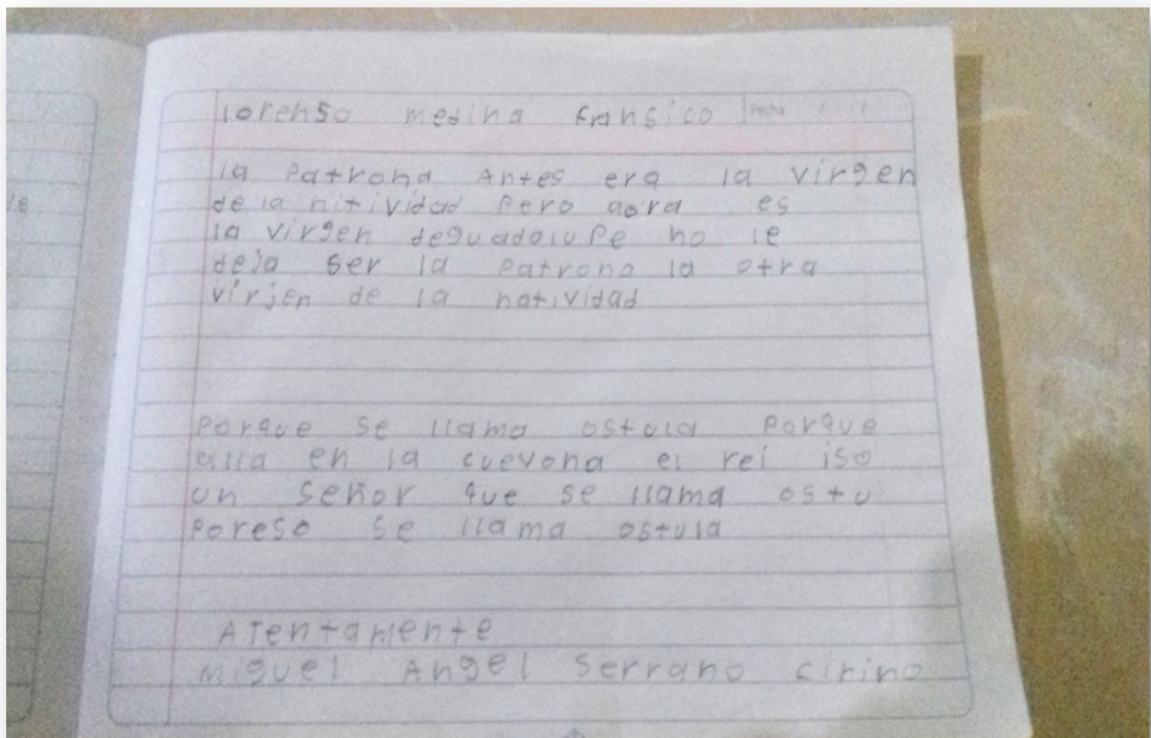 lorenso medina fransico Fecha / /
la patrona Antes era la virgen
de la nitividad pero aora es
la virgen deguadalupe no le
deja ser la patrona la otra
virjen de la natividad
porque se llama ostula porque
alla en la cuevona el rei iso
un señor que se llama ostu
poreso se llama ostula
Atentamente
Miguel Angel Serrano cirino